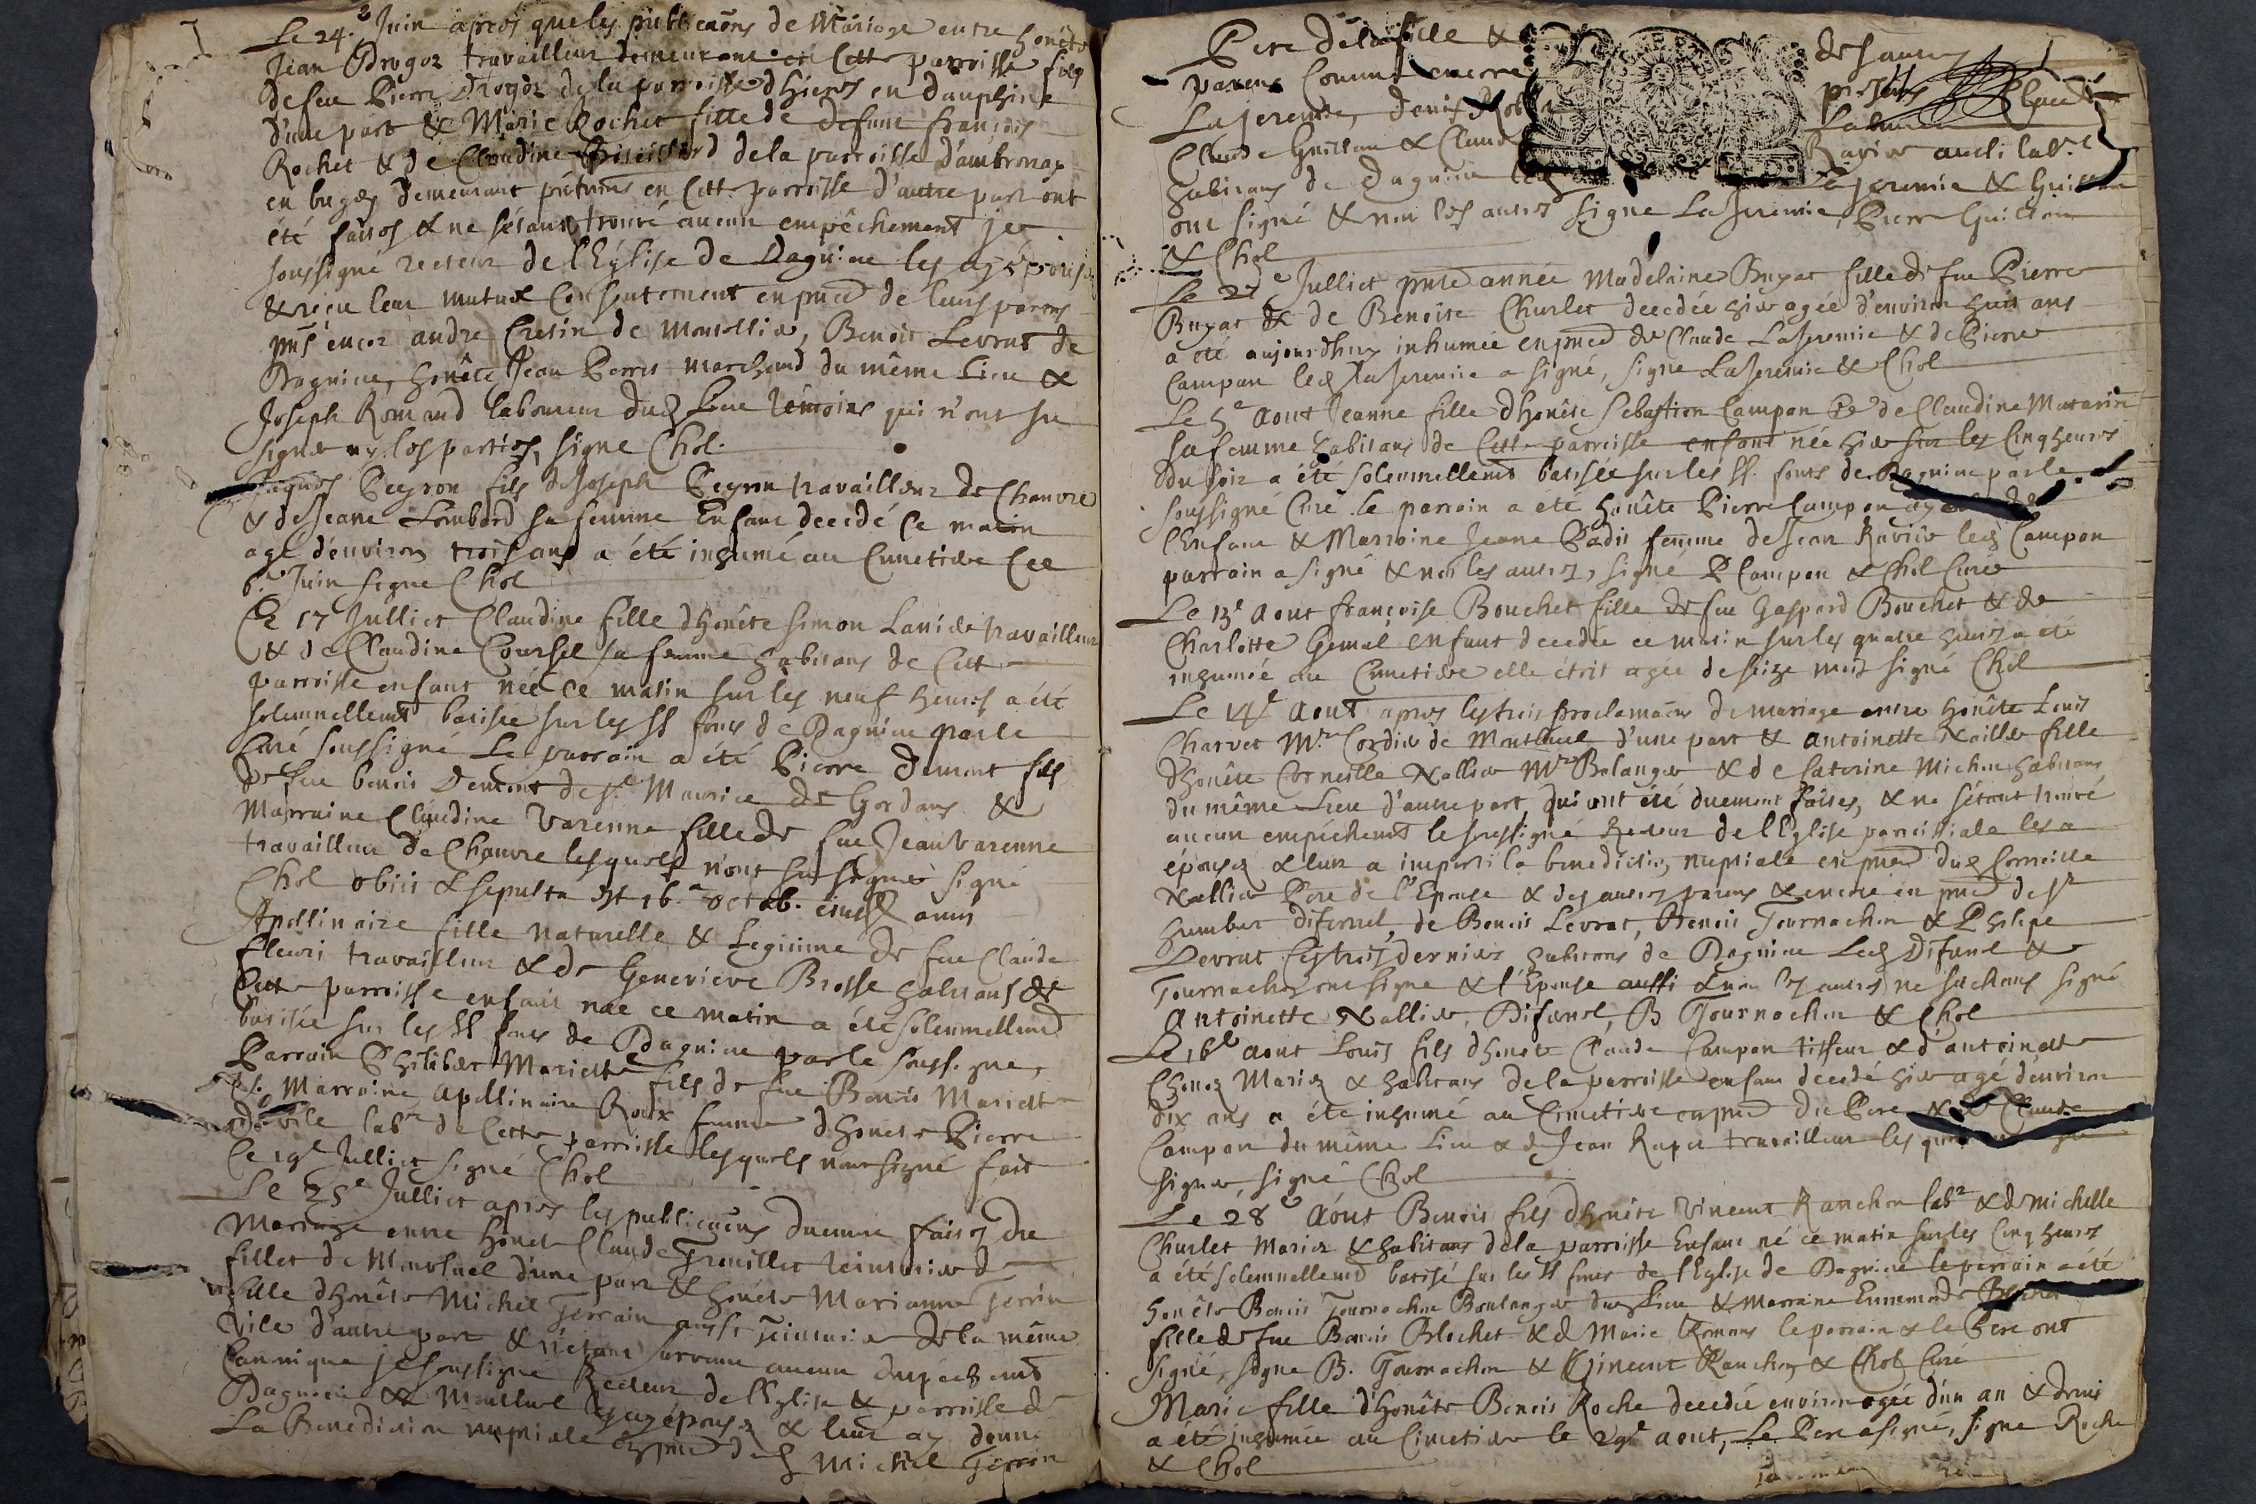 Le 24.e Juin apres que les publicaõns de Mariage entre honête
Jean Drogoz travailleur demeurant en Cette parroisse fils
de feu Pierre Drogoz de la parroisse d'hieres en dauphiné
d'une part & Marie Rochet fille de defunt françois
Rochet & de Claudine d de la parroisse d'ambronay
en bugey demeurant en Cette parroisse d'autre part ont
été faites & ne s'étant trouvé aucun empêchement je
soussigné recteur de l'Église de Dagnieu les ay épousé
& reçu leur mutuel Consentement en pñce de leurs parens
pñs encor andre Cresin de Montellier, Benoit Levrat de
Dagnieu, honête Jean Perret marchand du même Lieu &
Joseph Romand laboureur dud Lieu témoins qui n'ont su
signer ny les parties, signé Chol.
Jaques Peyron fils de Joseph Peyron travailleur de Chanvre
& de Jeane Lombard sa femme Enfant decedé Ce matin
agé d'environ trois ans a été inhumé au Cimetiere Ce
6.e Juin signé Chol
Ce 17 Julliet Claudine fille d'honête simon Lanier travailleur
& de Claudine Coursel sa femme habitans de Cette
parroisse enfant née Ce matin sur les neuf heures a été
solemnellemt batisée sur les SS fons de Dagnieu par le
Curé soussigné Le parrain a été Pierre Demont fils
de feu benoit Demont de St Maurice de Gordans &
Marraine Claudine Varenne fille de feu Jean Varenne
travailleur de Chanvre lesquels n'ont su signer signé
Chol obiit & sepulta est 16.a octob. eiusd anni
Apollinaire fille naturelle & Legitime de feu Claude
fleuri travailleur & de Genevieve Brosse habitans de
Cette parroisse enfant née ce matin a été solemnellemt
batisée sur les SS fons de Dagnieu par le soussigné,
Parrain Philibert Mariette fils de feu Benoit Mariette
Marraine Apollinaire Roux femme d'honete Pierre
labr de Cette parroisse lesquels n'ont signé fait
Ce 19e Julliet signé Chol
Le 25e Julliet apres les publicaõns duement faites du
Mariage entre honete Claude Treuillet teinturier de
fillet de Montluel d'une part & honete Marianne Terrin
fille d'honête Michel Terrain aussi Teinturier de la même
Vile d'autre part & n'étant survenu aucun empêchemt
Cannnique je soussigné Recteur de l'Eglise & parroisse de
Dagnieu & Montluel les ay épousez & leur ay donné
La Benediction nuptiale en pñce dud Michel Terrin
Pere de la fille & de
parens Comme encore
Lajeremie, denis
Claude Guillon & Claude
habitans de Dagnieu
ont signé & non les autres signé LaJeremie, Pierre Guillon
& Chol
Le 27e Julliet pñte année Madelaine Buyat fille de feu Pierre
Buyat & de Benoite Churlet decedée hier agée d'environ huit ans
a été aujourdhuy inhumée en pñce de Claude LaJeremie & de Pierre
Campan led LaJeremie a signé, signé LaJeremie & Chol
Le 5e Aout Jeanne fille d'honête Sebastien Campan & de Claudine Matarin
sa femme habitans de Cette parroisse enfant née hier sur les Cinq heures
du soir a été solemnellemt batisée sur les SS. fonts de Dagnieu par le
soussigné Curé le parrain a été honête Pierre Campan
l'Enfant & Marraine Jeane Padis femme de Jean Ravier led Campan
parrain a signé & non les autres, signé P Campan & Chol Curé
Le 13e Aout françoise Bouchet fille de feu Gaspard Bouchet & de
Charlotte Gemal enfant decedée ce matin sur les quatre heures a été
inhumée au Cimetiere elle étoit agée de seize mois signé Chol
Le 14e Aout apres les trois proclamaõns de mariage entre honête Louis
Charvet Mre Cordier de Montluel d'une part & Antoinette Nallier fille
d'honête Corneille Nallier Mre Bolanger & de Caterine Michon habitans
du même Lieu d'autre part, qui ont été duement faites, & ne s'étant trouvé
aucun empêchemt le soussigné Recteur de l'Eglise parroissiale les a
épousez & leur a imparti la benediction nuptiale en pñce dud Corneille
Nallier Pere de l'Epouse & des autres parens & encore en pñce de Sr
humbert Difernel, de Benoit Levrat, Benoit Tournachon & Philipe
Levrat Ces trois derniers habitans de Dagnieu Led Difernel &
Tournachon ont signé & l'Epouse aussi & non les autres ne sachans signé
Antoinette Nallier, Difernel, B Tournachon & Chol
Le 16e Aout Louis fils d'honete Claude Campan tisseur & d'antoinette
Chenoz Mariez & habitans de la parroisse enfant decedé hier agé d'environ
dix ans a été inhumé au Cimetiere en pñce du Pere & de Claude
Campan du même Lieu & de Jean Rapet travailleur les
signer, signé Chol
Le 28e Aout Benoit fils d'honête Vincent Ranchon labr & de Michelle
Churlet Mariez & habitans de la parroisse Enfant né ce matin sur les Cinq heures
a été solemnellemt batisé sur les SS fons de l'Eglise de Dagnieu le parrain a été
honête Benoit Tournachon Boulanger dud Lieu & Marraine Ennemonde Blochet
fille de feu Benoit Blochet & de Marie Romans le parrain & le Pere ont
signé, signé B. Tournachon & Vincent Ranchon & Chol Curé
Marie fille d'honête Benoit Roche decedée environ agée d'un an & demi
a été inhumée au Cimetiere le 29e Aout, Le Pere a signé, signé Roche
& Chol